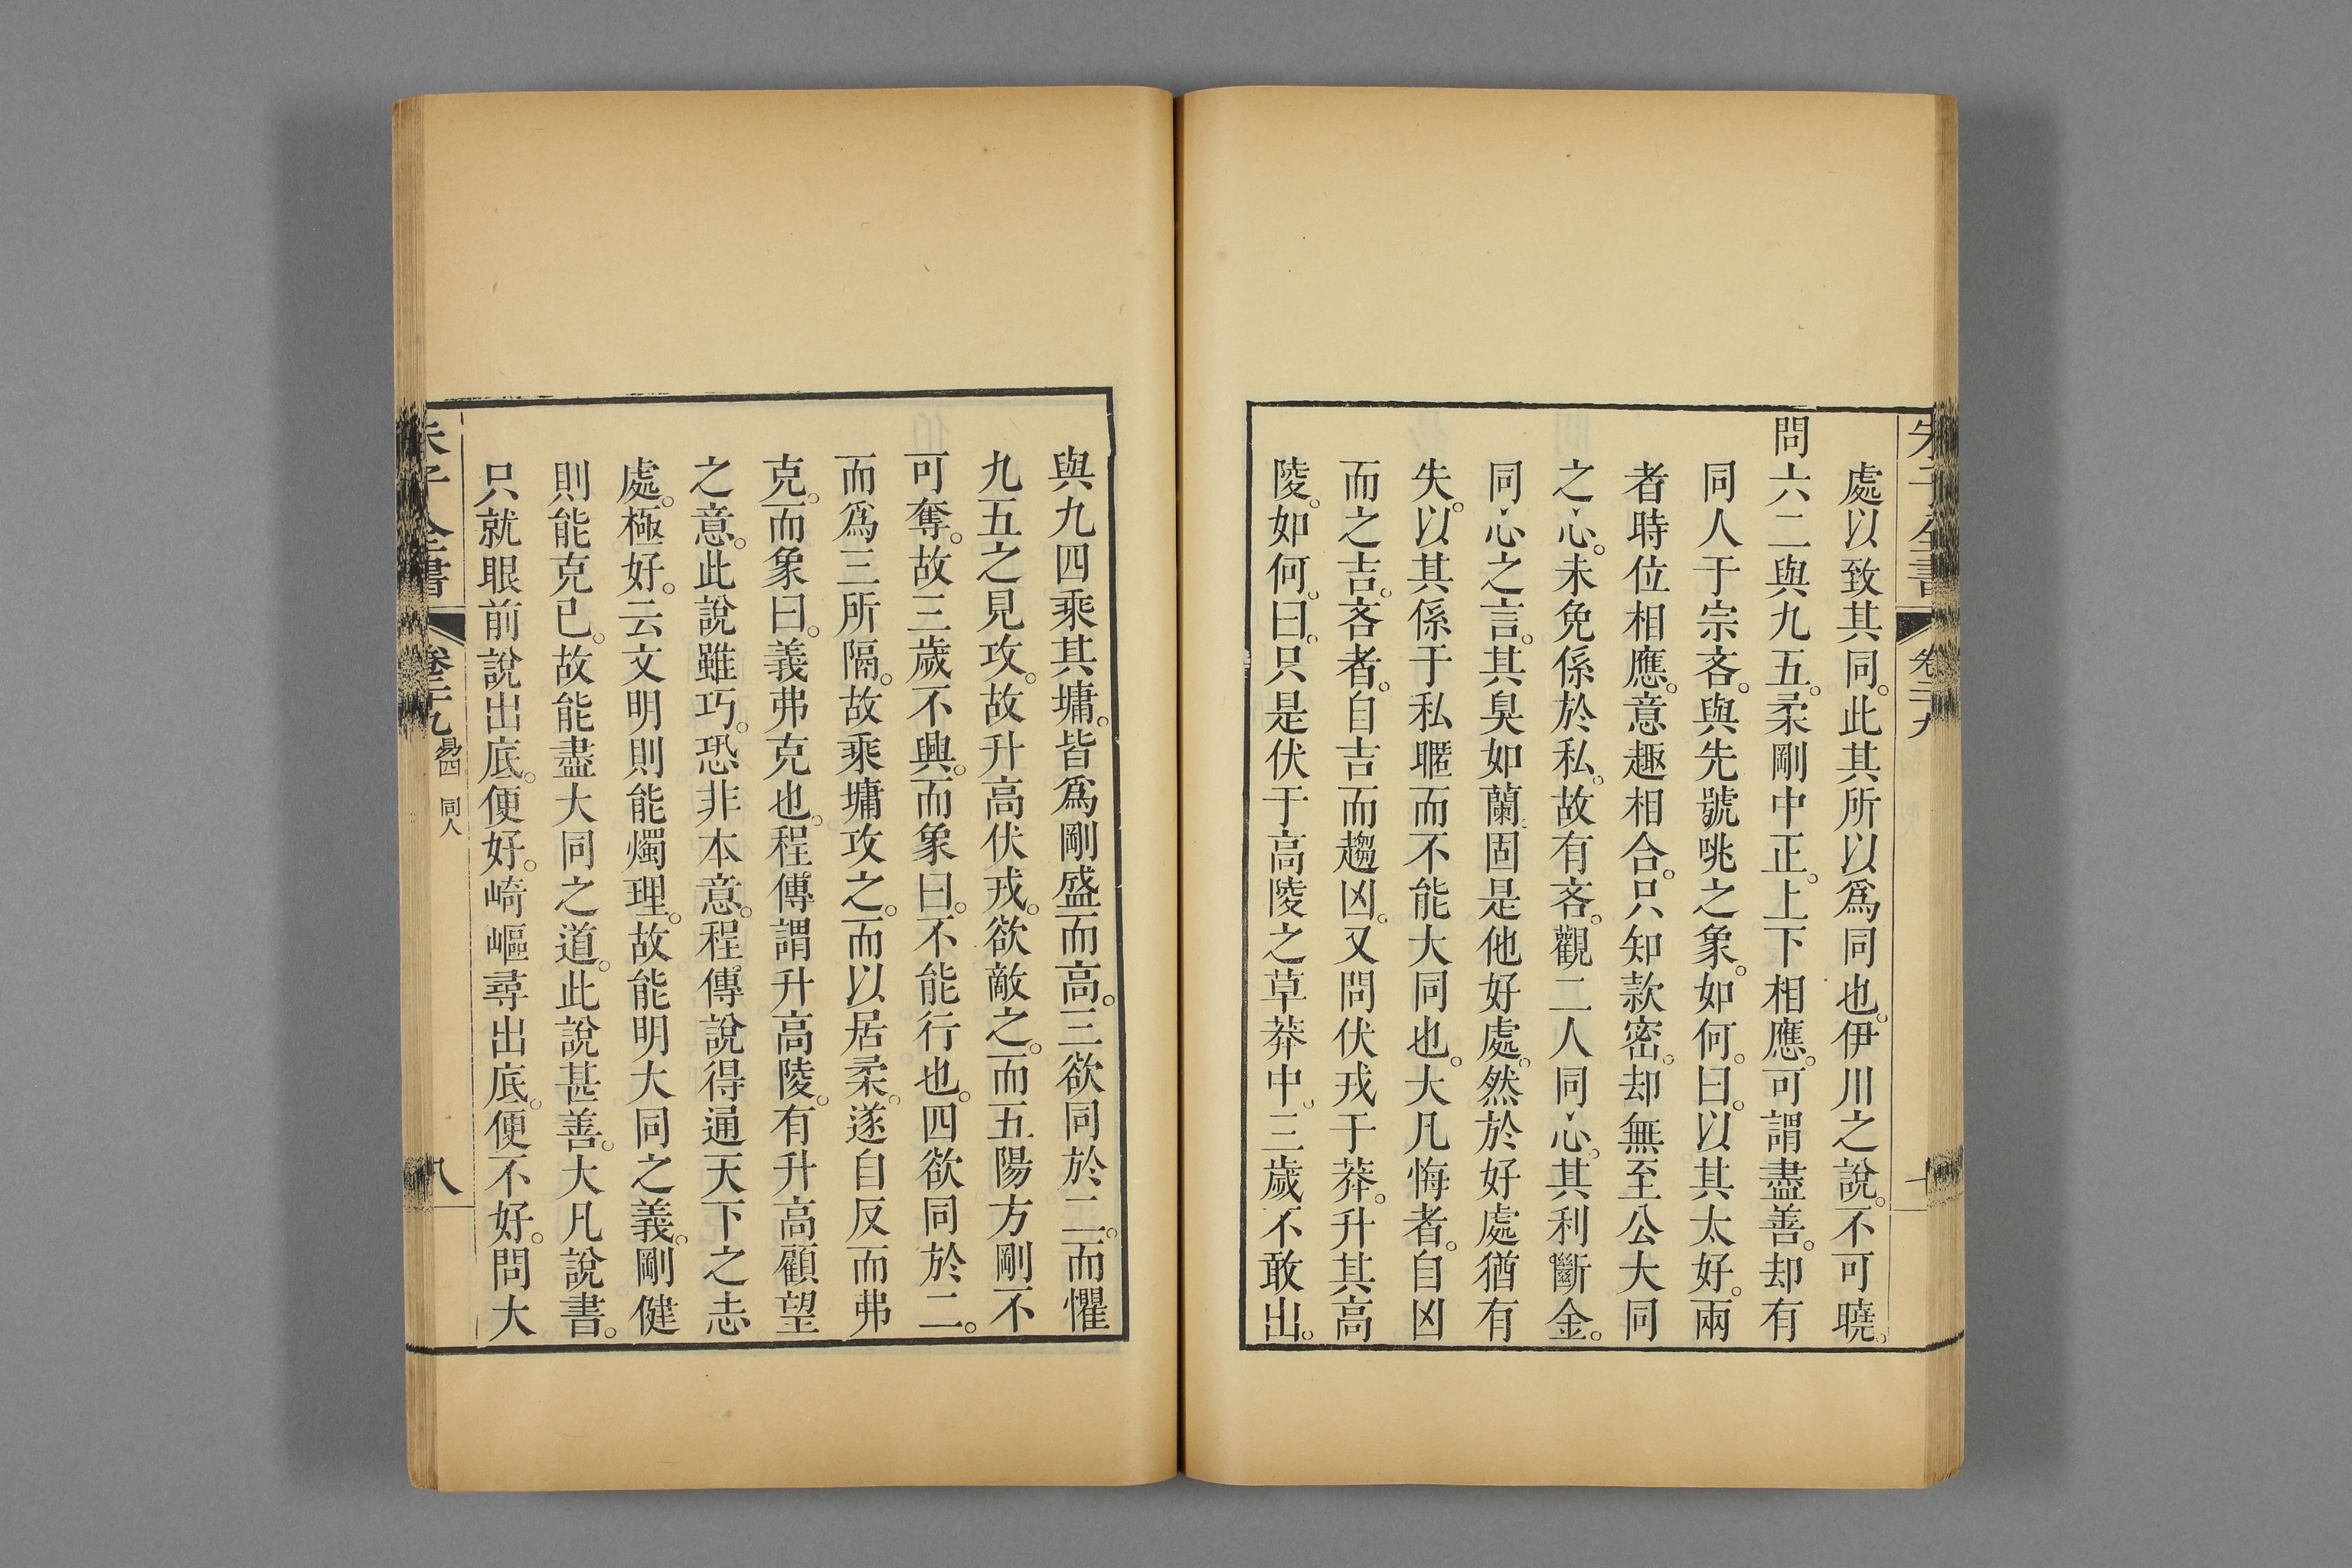 朱子全書 卷二十九
處以致其同。此其所以爲同也。伊川之說。不可曉。
問六二與九五。柔剛中正。上下相應。可謂盡善。却有
同人于宗吝。與先號咷之象。如何。曰。以其太好。兩
者時位相應。意趣相合。只知款密。却無至公大同
之心。未免係於私。故有吝。觀二人同心。其利斷金。
同心之言。其臭如蘭。固是他好處。然於好處猶有
失。以其係于私暱而不能大同也。大凡悔者。自凶
而之吉。吝者。自吉而趨凶。又問伏戎于莽。升其高
陵。如何。曰。只是伏于高陵之草莽中。三歲不敢出。
與九四乘其墉。皆爲剛盛而高。三欲同於二。而懼
九五之見攻。故升高伏戎。欲敵之。而五陽方剛不
可奪。故三歲不興。而象曰。不能行也。四欲同於二。
而爲三所隔。故乘墉攻之。而以居柔。遂自反而弗
克。而象曰。義弗克也。程傳謂升高陵。有升高顧望
之意。此說雖巧。恐非本意。程傳說得通天下之志
處。極好。云文明則能燭理。故能明大同之義。剛健
則能克已。故能盡大同之道。此說甚善。大凡說書。
只就眼前說出底。便好。崎嶇尋出底。便不好。問大
朱子全書 卷二十九 易四 同人 八